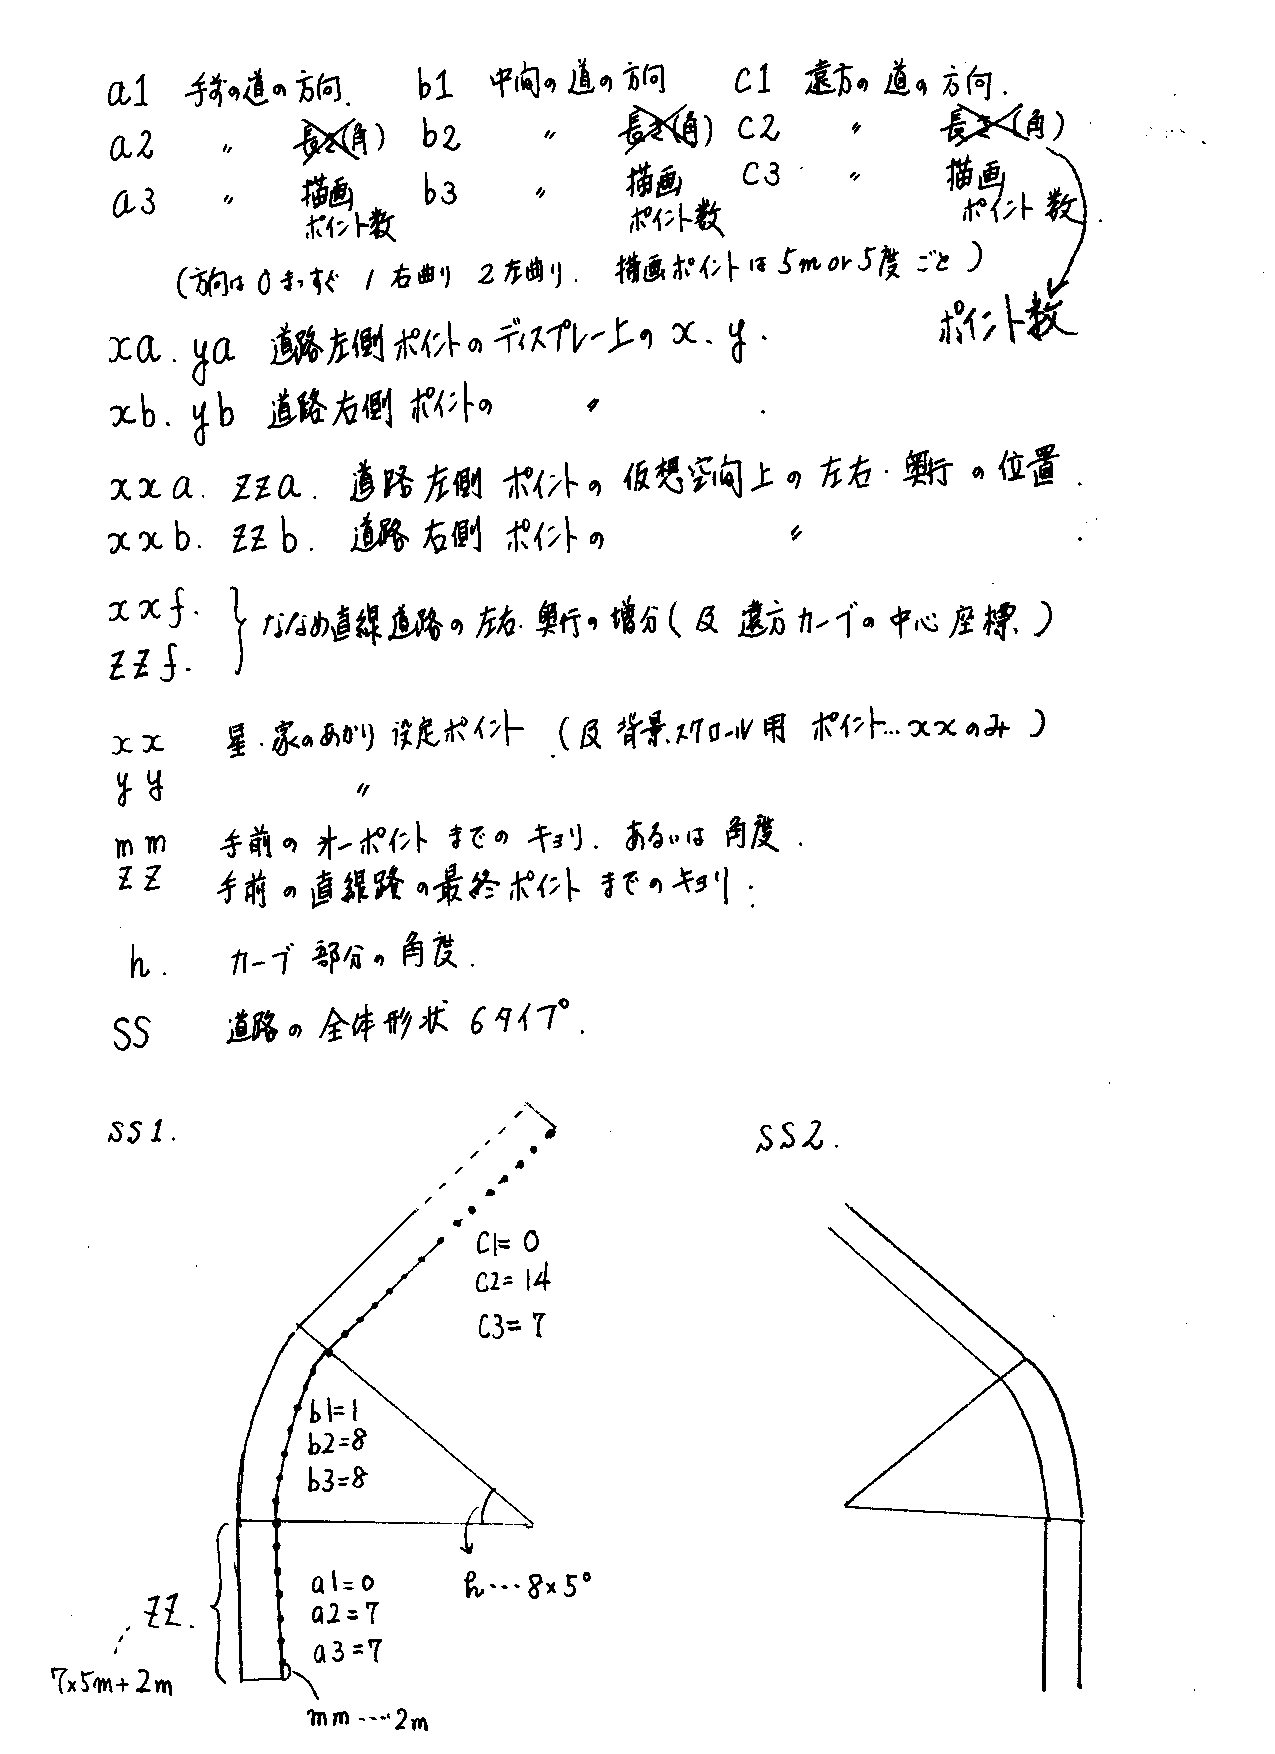 a1 手前の道の方向. b1 中間の道の方向 c1 遠方の道の方向.
a2 〃 長さ(角) b2 〃 長さ(角) c2 〃 長さ(角)
a3 〃 描画ポイント数 b3 〃 描画ポイント数 c3 〃 描画ポイント数.
(方向は 0 まっすぐ 1 右曲り 2 左曲り. 描画ポイントは 5m or 5度ごと)
ポイント数
xa. ya 道路左側ポイントのディスプレー上の x、y.
xb. yb 道路右側ポイントの 〃 .
xxa. zza. 道路左側ポイントの仮想空间上の左右・奥行の位置.
xxb. zzb. 道路右側ポイントの 〃 .
xxf.
zzf.
ななめ直線道路の左右・奥行の増分(及 遠方カーブの中心座標.)
xx 星・家のあかり設定ポイント (及 背景スクロール用 ポイント…xxのみ)
yy 〃
mm 手前の オ一ポイントまでのキョリ. あるいは角度.
zz 手前の直線路の最終ポイントまでのキョリ.
h. カーブ部分の角度.
SS 道路の全体形状 6タイプ.
SS1.
SS2.
C1=0
C2=14
C3=7
b1=1
b2=8
b3=8
h…8×5°
a1=0
a2=7
a3=7
ZZ.
7×5m+2m
mm……2m